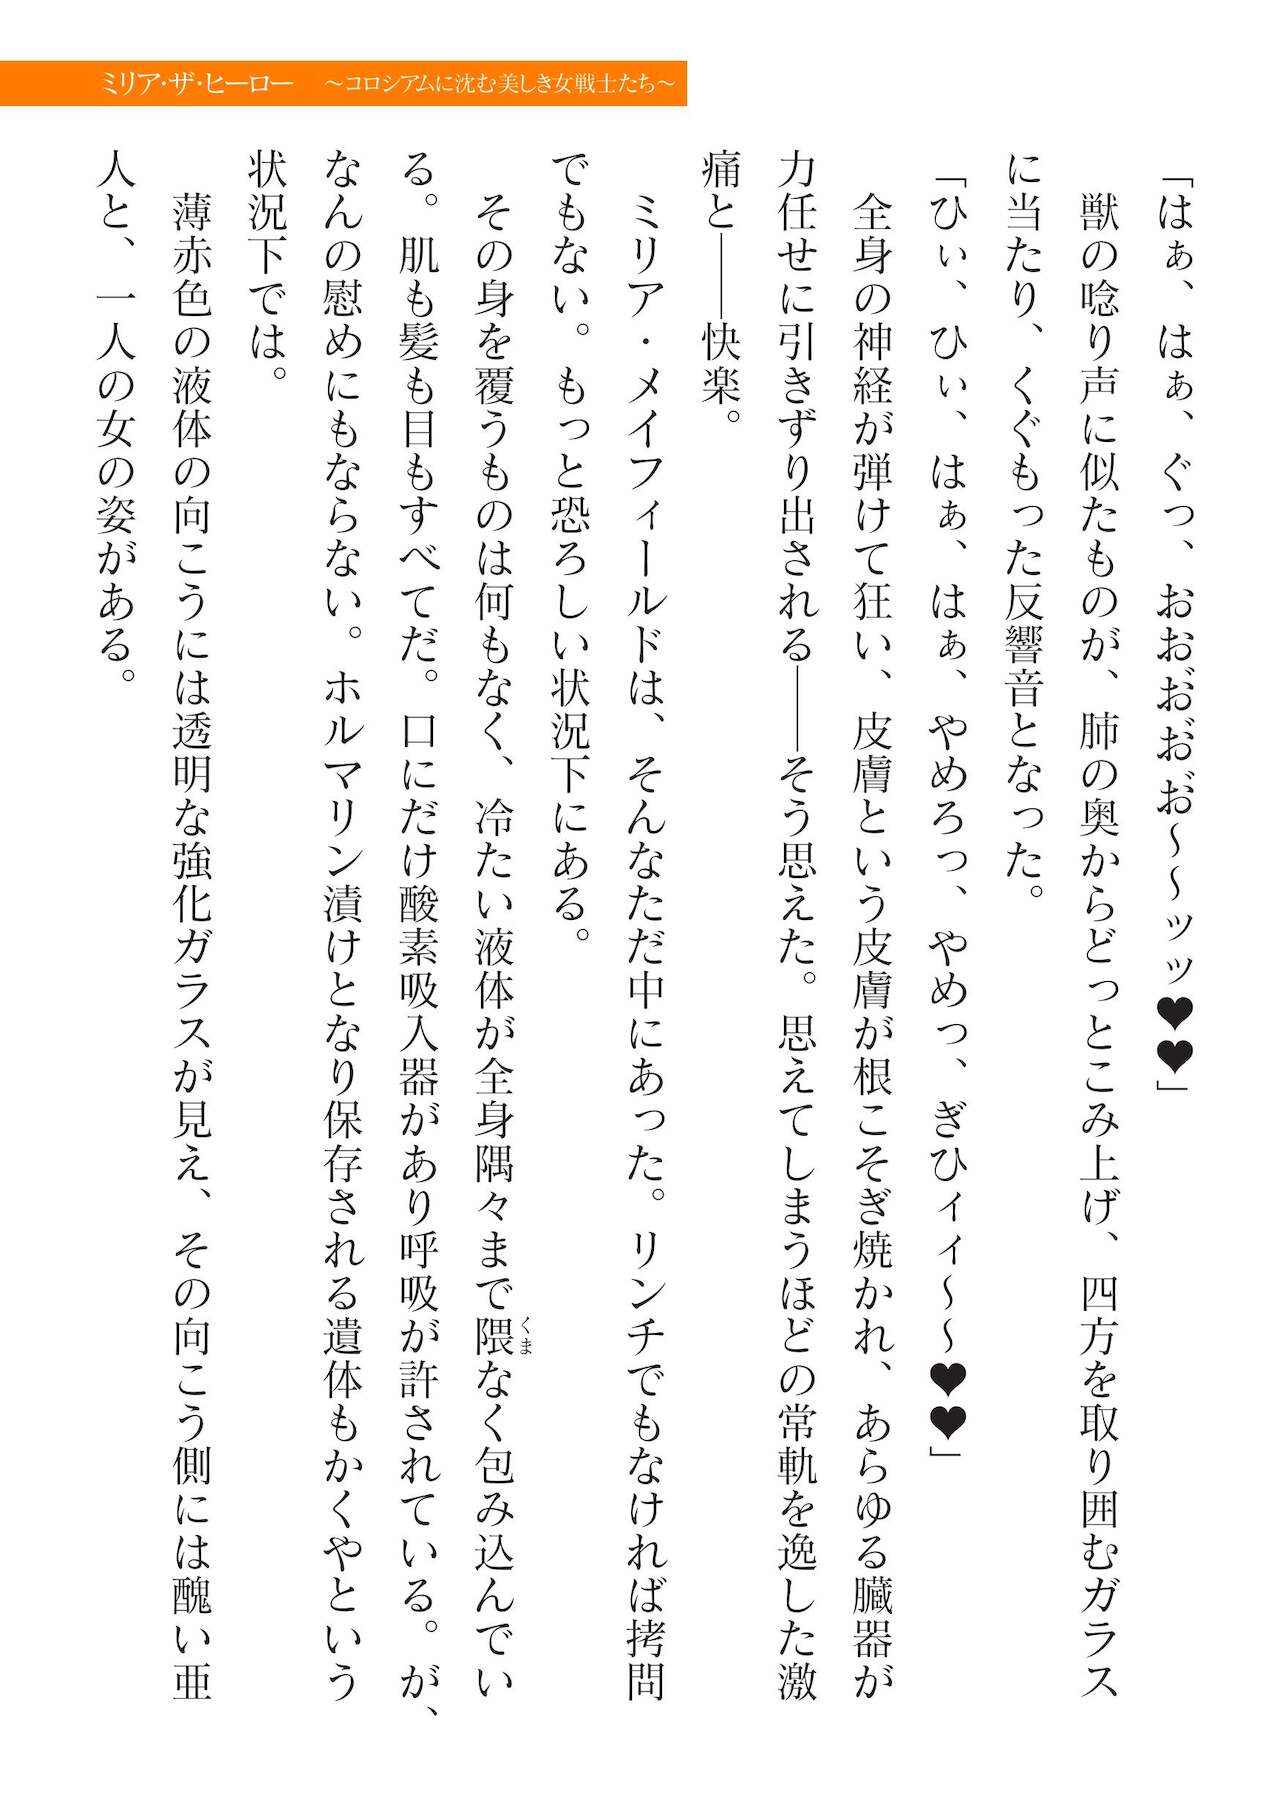 ミリア・ザ・ヒーロー　～コロシアムに沈む美しき女戦士たち～
「はぁ、はぁ、ぐっ、おおおおお～～ッッ♥♥」
獣の唸り声に似たものが、肺の奥からどっとこみ上げ、四方を取り囲むガラス
に当たり、くぐもった反響音となった。
「ひぃ、ひぃ、はぁ、はぁ、やめろっ、やめっ、ぎひィィ～～♥♥」
全身の神経が弾けて狂い、皮膚という皮膚が根こそぎ焼かれ、あらゆる臓器が
力任せに引きずり出される――そう思えた。思えてしまうほどの常軌を逸した激
痛と――快楽。
ミリア・メイフィールドは、そんなただ中にあった。リンチでもなければ拷問
でもない。もっと恐ろしい状況下にある。
その身を覆うものは何もなく、冷たい液体が全身隅々まで隈なく包み込んでい
くま
る。肌も髪も目もすべてだ。口にだけ酸素吸入器があり呼吸が許されている。が、
なんの慰めにもならない。ホルマリン漬けとなり保存される遺体もかくやという
状況下では。
薄赤色の液体の向こうには透明な強化ガラスが見え、その向こう側には醜い亜
人と、一人の女の姿がある。